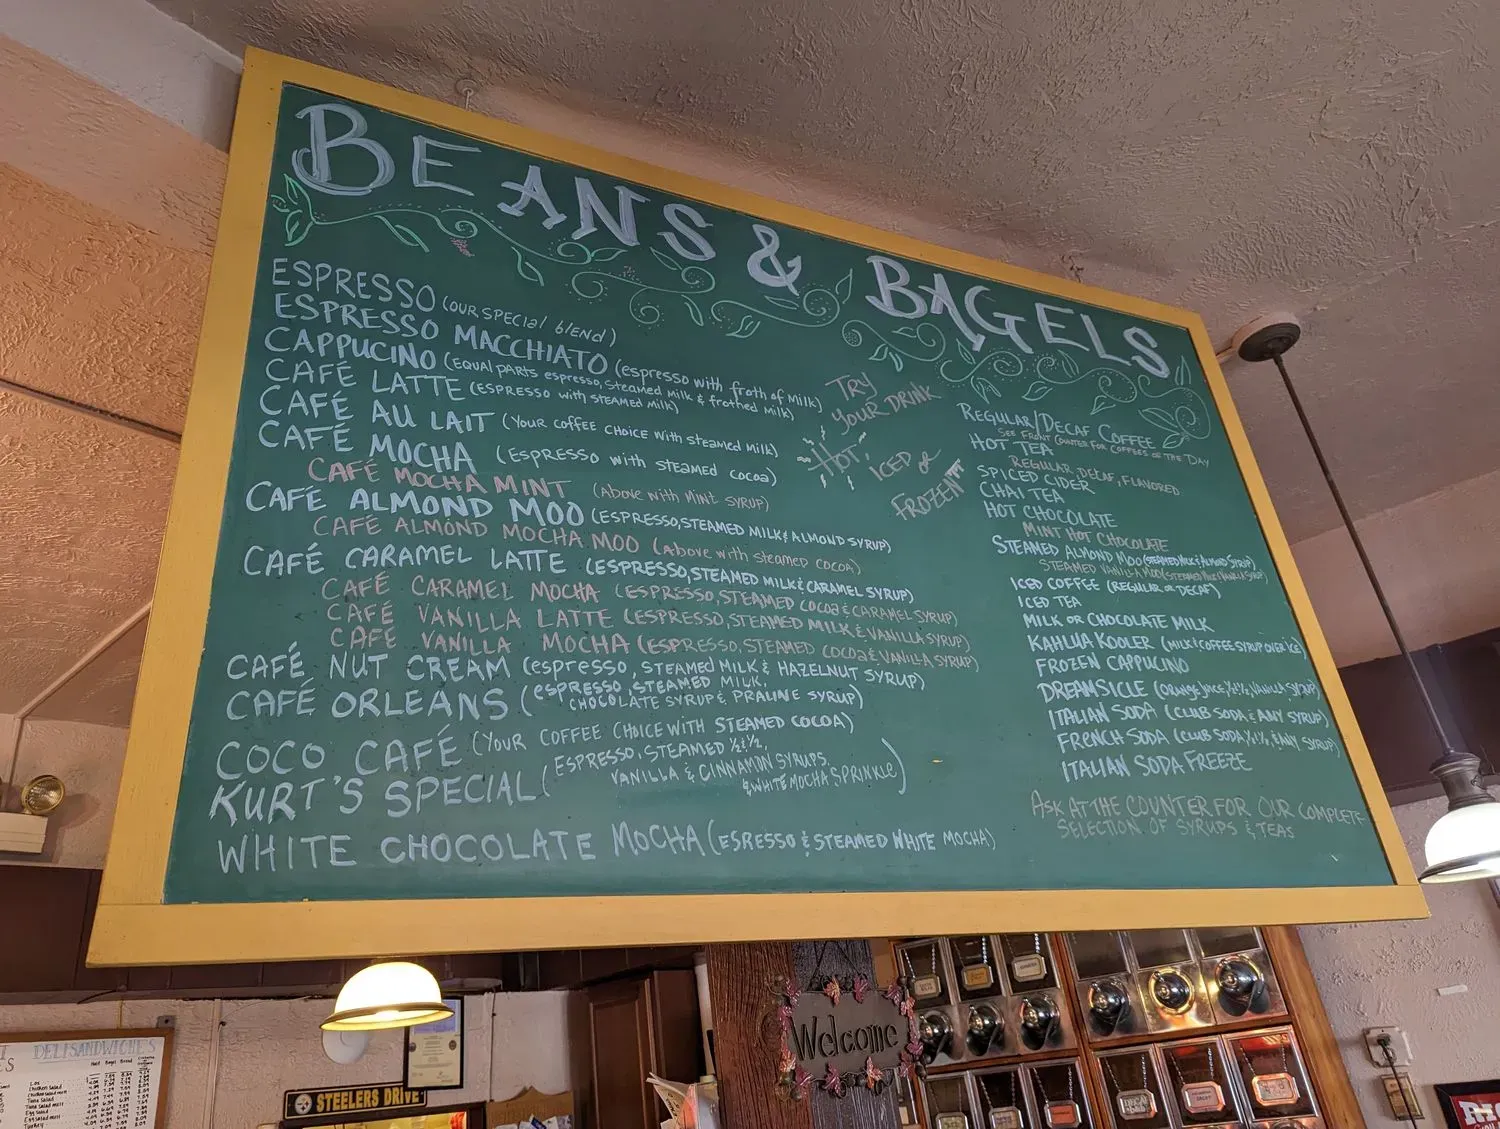 BEANS & BAGELS
ESPRESSO (OUR SPECIAL blENd)
ESPRESSO MACCHIATO (espresso with froth of Milk)
CAPPUCINO (EQUAL PARTS espresso, steamed Milk & frothed milk)
CAFÉ LATTE (ESPRESSO with STEAMED Milk)
CAFÉ AU LAIT (YOUR COFFEE CHOICE WITH STEAMED Milk)
CAFÉ MOCHA (ESPRESSO with STEAMED COCOA)
CAFÉ MOCHA MINT (ABOVE WITH MINT SYRUP)
CAFÉ ALMOND MOO (ESPRESSO, STEAMED MILK & ALMOND SYRUP)
CAFÉ ALMOND MOCHA MOO (Above with Steamed COCOA)
CAFÉ CARAMEL LATTE (ESPRESSO, STEAMED MILK & CARAMEL SYRUP)
CAFÉ CARAMEL MOCHA (ESPRESSO, STEAMED COCOA & CARAMEL SYRUP)
CAFÉ VANILLA LATTE (ESPRESSO, STEAMED MILK & VANILLA SYRUP)
CAFÉ VANILLA MOCHA (ESPRESSO, STEAMED COCOA & VANILLA SYRUP)
CAFÉ NUT CREAM (espresso, STEAMED MILK & HAZELNUT SYRUP)
CAFÉ ORLEANS (ESPRESSO, STEAMED MILK,
CHOCOLATE SYRUP & PRALINE SYRUP)
COCO CAFÉ (YOUR COFFEE CHOICE WITH STEAMED COCOA)
KURT'S SPECIAL (ESPRESSO, STEAMED ½ & ½,
VANILLA & CINNAMON SYRUPS,
& WHITE MOCHA SPRINKLE)
WHITE CHOCOLATE MOCHA (ESRESSO & STEAMED WHITE MOCHA)
TRY
YOUR DRINK
HOT,
ICED OR
FROZEN
REGULAR/DECAF COFFEE
SEE FRONT COUNTER FOR COFFEES OF THE DAY
HOT TEA
REGULAR, DECAF, FLAVORED
SPICED CIDER
CHAI TEA
HOT CHOCOLATE
MINT HOT CHOCOLATE
STEAMED ALMOND MOO (STEAMED MILK & ALMOND SYRUP)
STEAMED VANILLA MOO (STEAMED MILK & VANILLA SYRUP)
ICED COFFEE (REGULAR OR DECAF)
ICED TEA
MILK OR CHOCOLATE MILK
KAHLUA KOOLER (MILK & COFFEE SYRUP OVER ICE)
FROZEN CAPPUCINO
DREAMSICLE (ORANGE JUICE, ½ & ½, VANILLA SYRUP)
ITALIAN SODA (CLUB SODA & ANY SYRUP)
FRENCH SODA (CLUB SODA, ½ & ½, & ANY SYRUP)
ITALIAN SODA FREEZE
ASK AT THE COUNTER FOR OUR COMPLETE
SELECTION OF SYRUPS & TEAS
Welcome
STEELERS DRIVE
DELI SANDWICHES
Half Bagel Bread
Lox
Chicken Salad
Tuna Salad
Tuna Salad melt
Egg Salad
Egg Salad melt
Turkey
DECAF